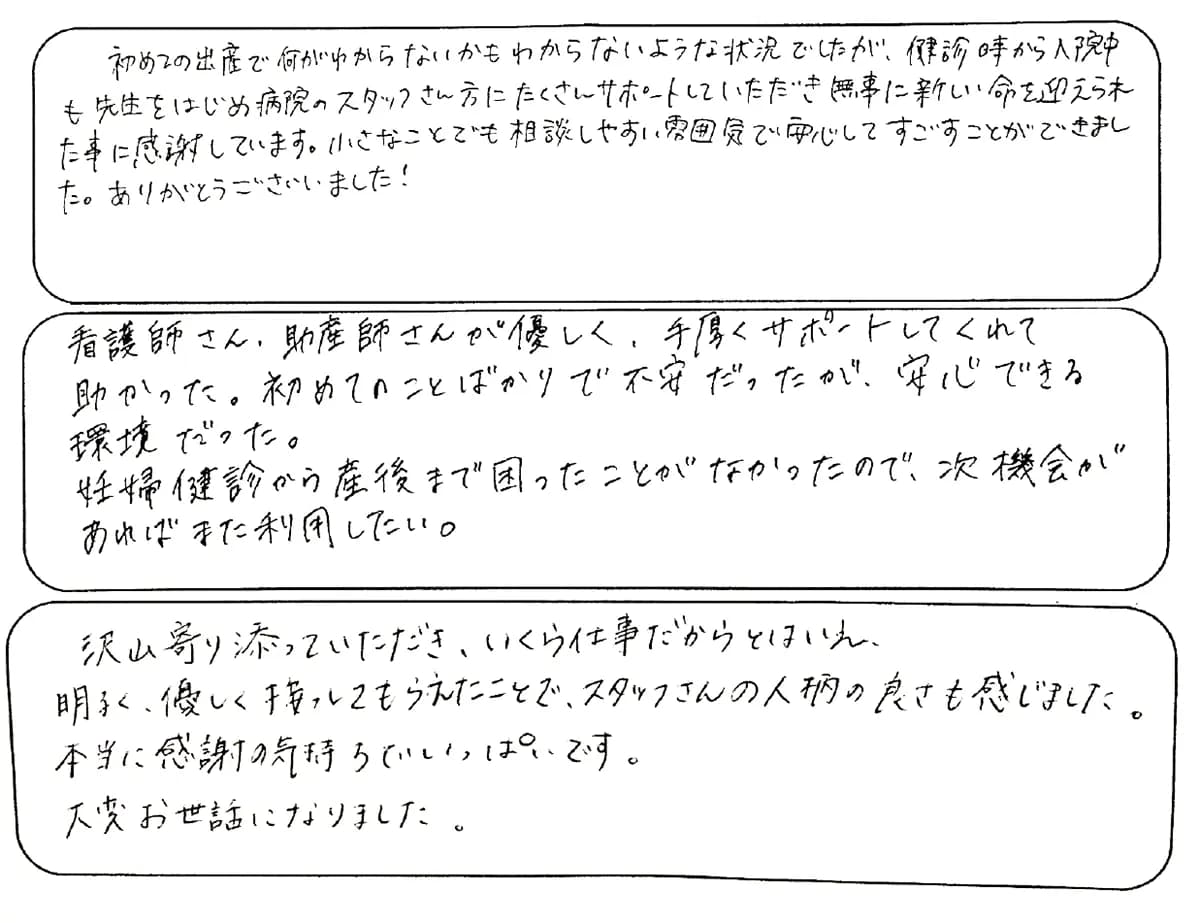 初めての出産で何がわからないかもわからないような状況でしたが、健診時から入院中
も先生をはじめ病院のスタッフさん方にたくさんサポートしていただき無事に新しい命を迎えられ
た事に感謝しています。小さなことでも相談しやすい雰囲気で安心してすごすことができまし
た。ありがとうございました!
看護師さん、助産師さんが優しく、手厚くサポートしてくれて
助かった。初めてのことばかりで不安だったが、安心できる
環境だった。
妊婦健診から産後まで困ったことがなかったので、次機会が
あればまた利用したい。
沢山寄り添っていただき、いくら仕事だからとはいえ、
明るく、優しく接っしてもらえたことで、スタッフさんの人柄の良さも感じました。
本当に感謝の気持ちでいっぱいです。
大変お世話になりました。